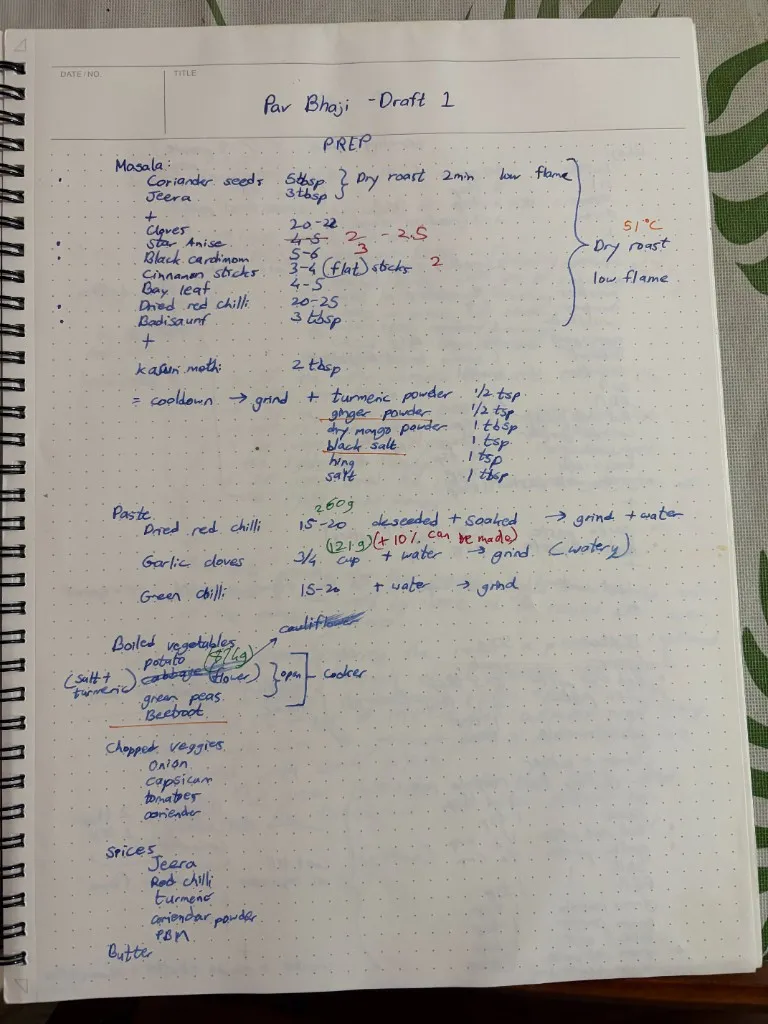 DATE/NO.
TITLE
Pav Bhaji - Draft 1
PREP
Masala:
Coriander seeds 5tbsp } Dry roast 2min low flame
Jeera 3tbsp
+
Cloves 20-22
Star Anise 4-5 2/3 - 2.5
Black cardimom 5-6
Cinnamon sticks 3-4 (flat) sticks 2
Bay leaf 4-5
Dried red chilli 20-25
Badisaunf 3 tbsp
51°C
Dry roast
low flame
+
kasuri methi 2 tbsp
= cooldown → grind + turmeric powder 1/2 tsp
ginger powder 1/2 tsp
dry mango powder 1 tbsp
black salt 1 tsp
hing 1 tsp
salt 1 tbsp
Paste
260g
Dried red chilli 15-20 deseeded + soaked → grind + water
(121g) (+10% can be made)
Garlic cloves 3/4 cup + water → grind (watery)
Green chilli 15-20 + water → grind
Boiled vegetables
potato
(salt + turmeric) cabbage (flower) } open - cooker
green peas
Beetroot
Chopped veggies
onion
capsicam
tomatoes
coriender
Spices
Jeera
Red chilli
turmeric
coriendar powder
PBM
Butter